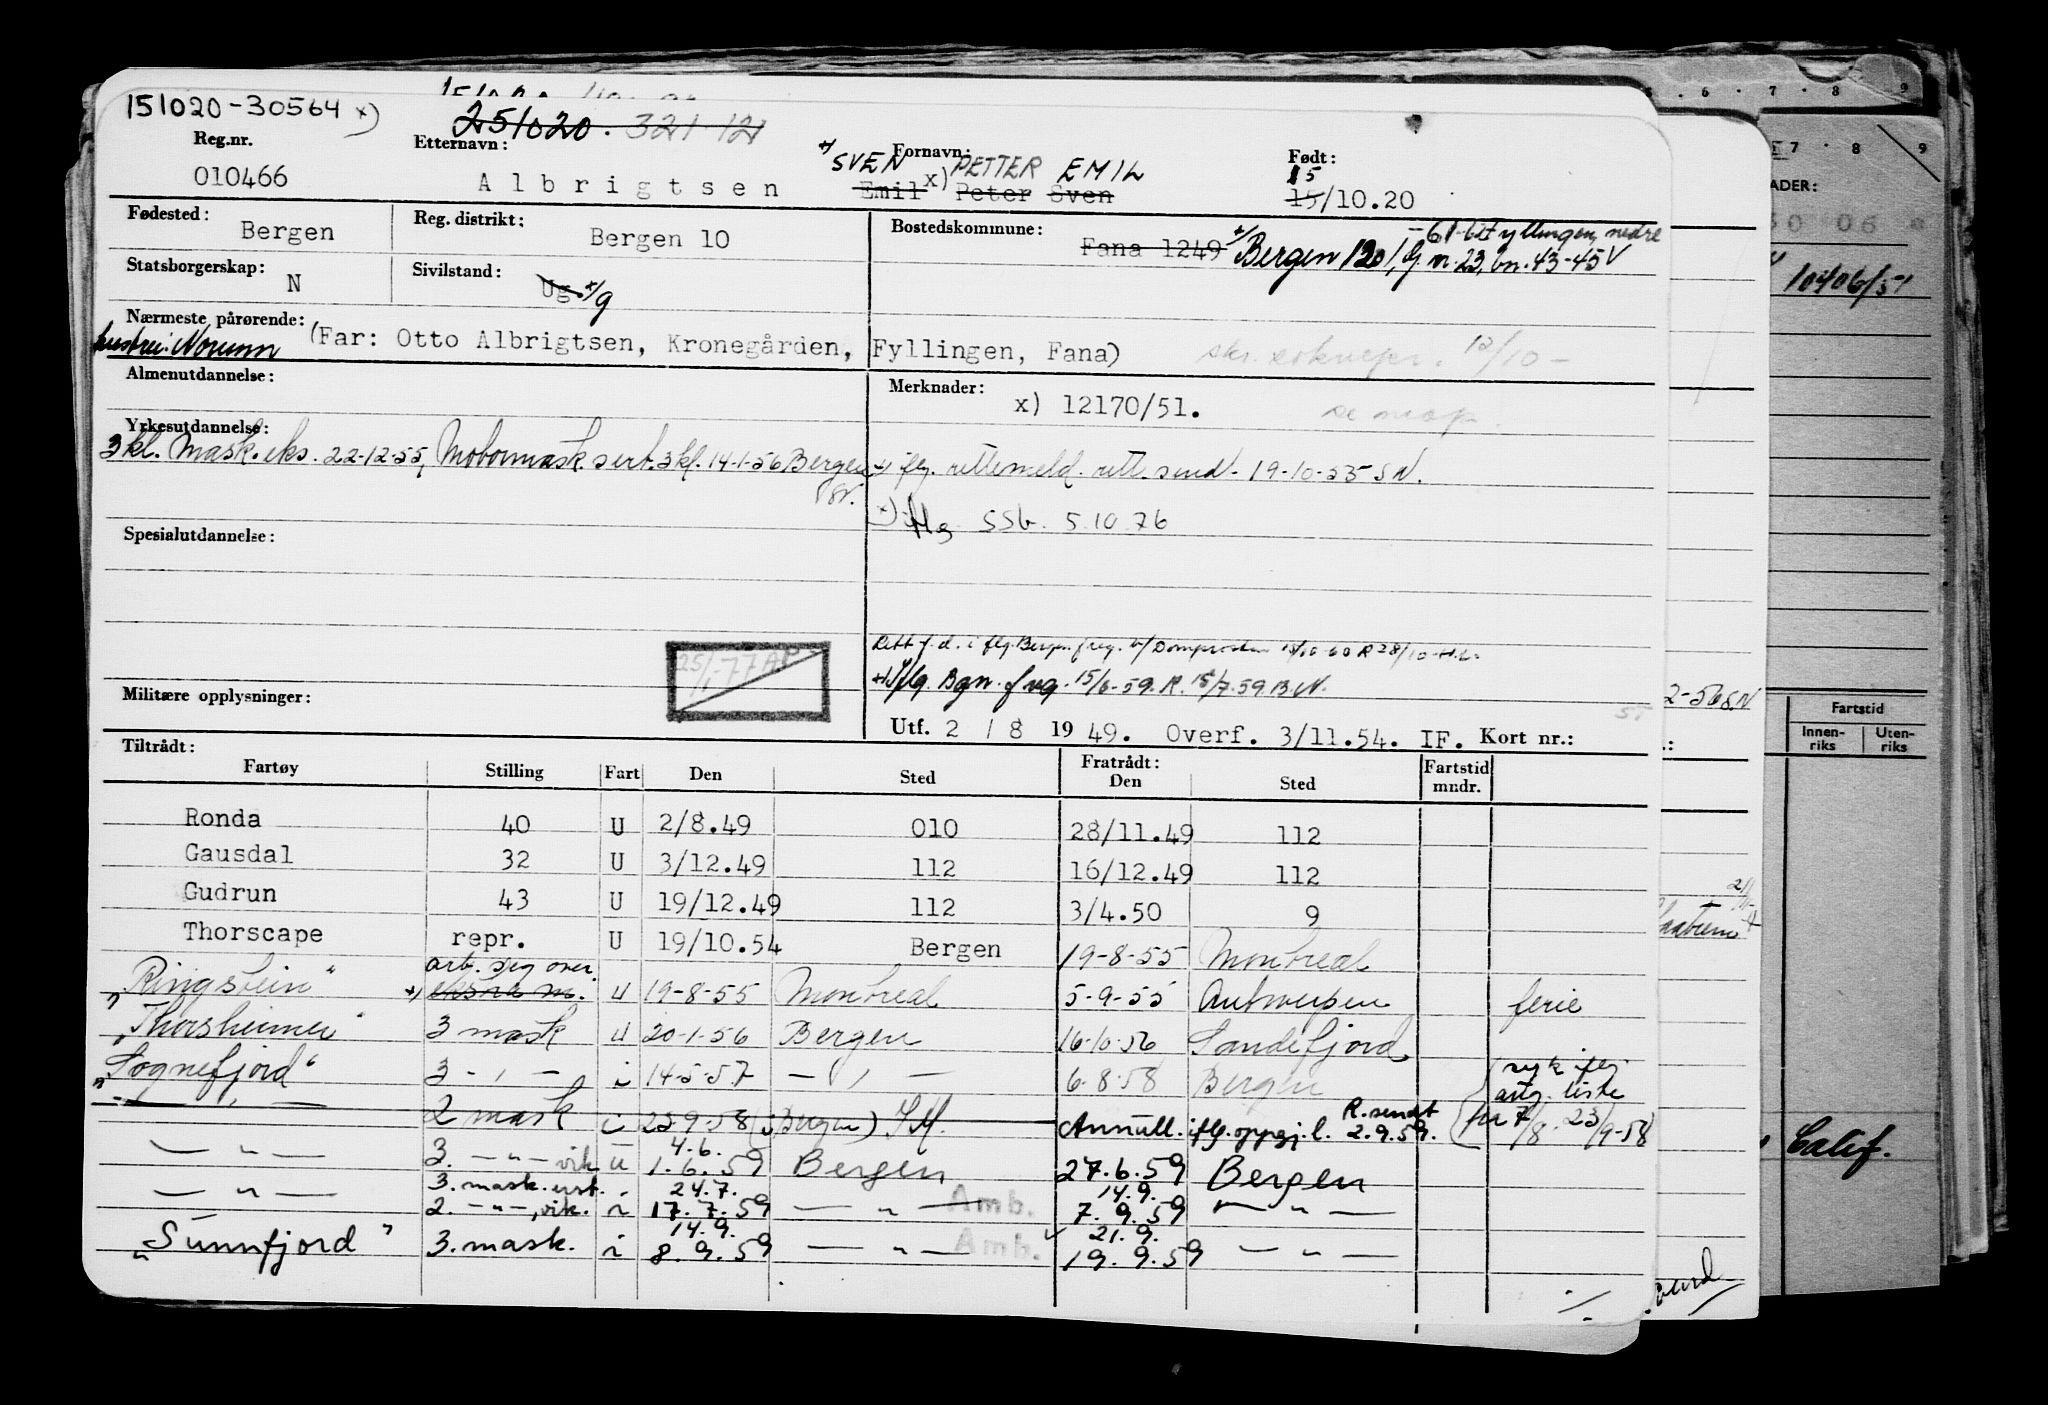 151020-30564 x)
251020. 321 12
Reg.nr.
010466
Etternavn:
Albrigtsen
Fornavn:
+/ SVEN x) PETTER EMIL
Emil Peter Sven
Født:
15
15/10.20
Fødested:
Bergen
Reg. distrikt:
Bergen 10
Bostedskommune:
Fana 1249 +/ Bergen 1201, g nr. 23, bn. 43-45 V
-61-62 Fyllingen, nedre
Statsborgerskap:
N
Sivilstand:
Ug. +/g
Nærmeste pårørende:
hustru: Norunn (Far: Otto Albrigtsen, Kronegården, Fyllingen, Fana)
12/10-
Almenutdannelse:
Merknader:
x) 12170/51.
Yrkesutdannelse:
3 kl. Mask. eks. 22-12-55, Motormask. sert. 3 kl. 14-1-56 Bergen
SN.
+/ iflg. rettemeld. rett. sendt. 19-10-55 SN.
x) iflg SSb. 5.10.76
Spesialutdannelse:
25/1-77 AP
Rett f.d. i flg. Bergen freg. v/ Domprosten 15/10-60 R 28/10-H.L.
+/ Iflg. Bgn. f reg. 15/6-59. R. 15/7.59. B.N.
Militære opplysninger:
Utf. 2 / 8 1949. Overf. 3/11.54. IF. Kort nr.:
Tiltrådt:
Fratrådt:
Fartøy Stilling Fart Den Sted Den Sted Fartstid mndr.
Ronda 40 U 2/8.49 010 28/11.49 112
Gausdal 32 U 3/12.49 112 16/12.49 112
Gudrun 43 U 19/12.49 112 3/4.50 9
Thorscape repr. U 19/10.54 Bergen 19-8-55 Montreal
arb. seg over.
"Ringstein" +/ ekstra m. U 19-8-55 Montreal 5-9-55 Antwerpen ferie
"Thorsheimer" 3 mask U 20-1-56 Bergen 16-10-56 Sandefjord
"Sognefjord" 3 - " - i 14-5-57 - " - 6-8-58 Bergen
syk iflg
avtg. liste
for 7/8. 23/9-58
- " - 2 mask i 23-9-58 (Bergen) SM. Annull. iflg. oppgj. l. R. sendt 2.9.59.
4.6.
- " - 3. - " - vik U 1.6.59 Bergen 27.6.59 Bergen
3. mask. urst. 24.7. 14.9.
- " - 2. - " -, vik. i 17.7.59 - " - Amb. 7.9.59 - " -
14.9. 21.9.
"Sunnfjord" 3. mask. i 8.9.59 - " - Amb. 19.9.59 - " -
./.
6 . 7 . 8 . 9
7 . 8 . 9
ADER:
10406/51
2-56 S.N
Fartstid
Innen-
riks
Uten-
riks
Calif.